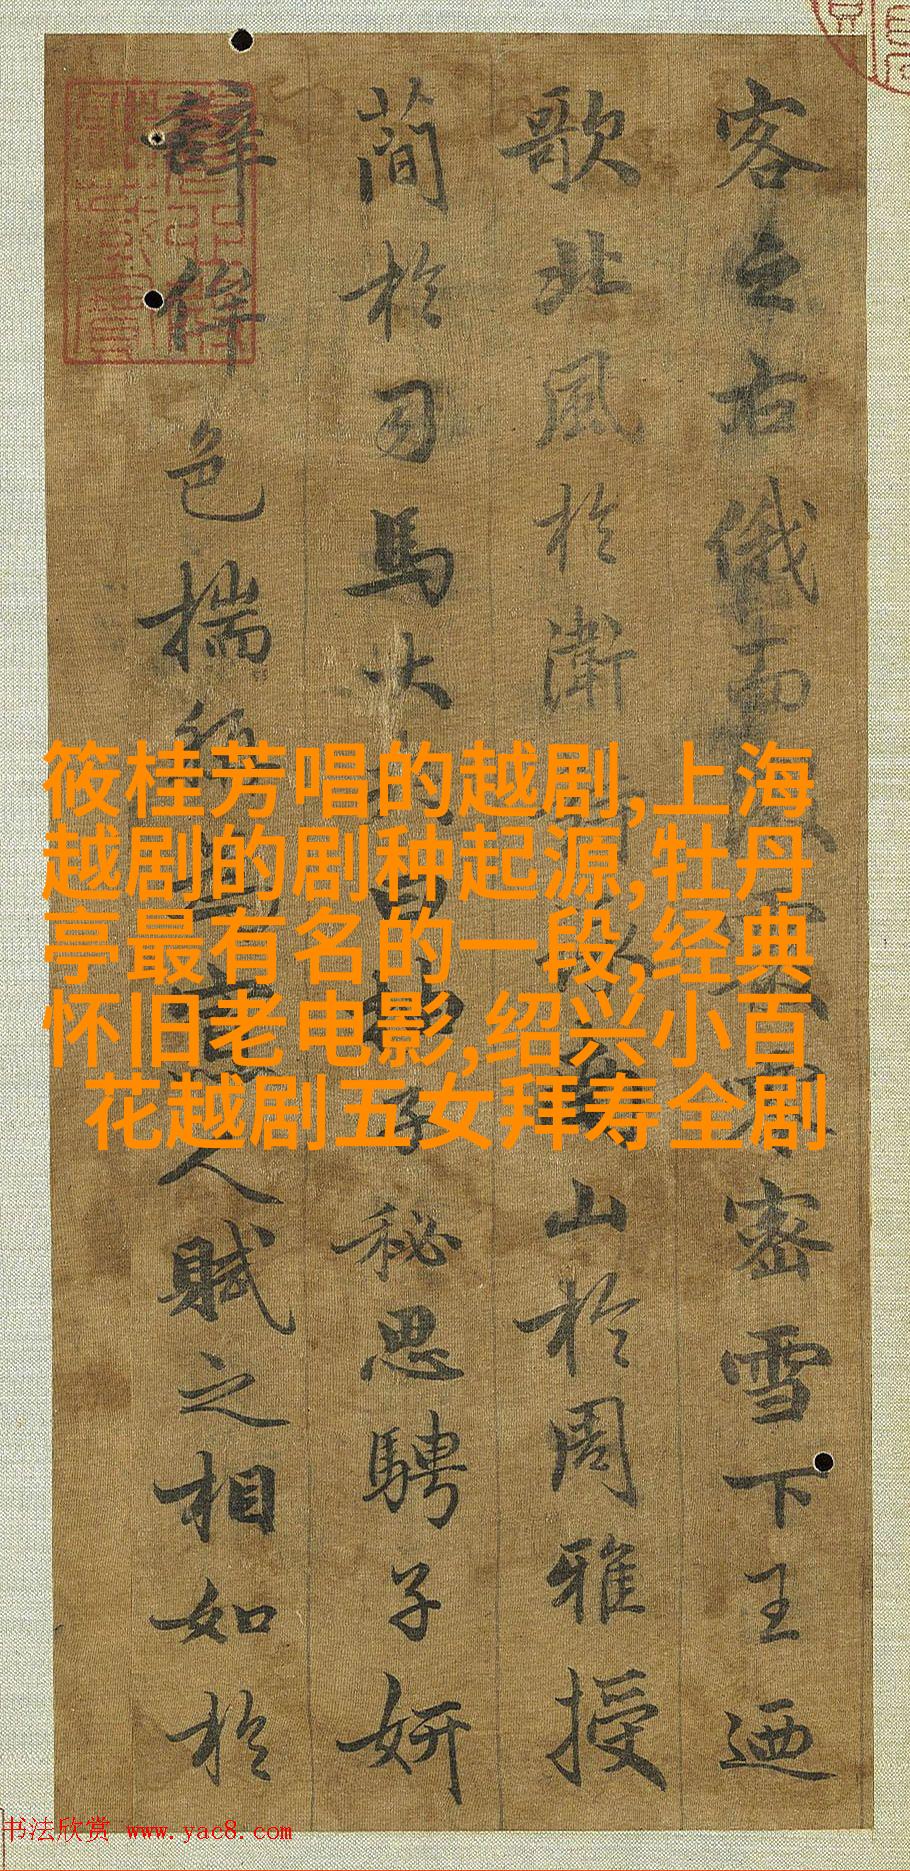 客之右俄而密雪下王迺
歌北風於衛山於周雅授
簡於司馬大曰子秘思騁子妍
辭侔色揣人賦之相如於
筱桂芳唱的越剧,上海
越剧的剧种起源,牡丹
亭最有名的一段,经典
怀旧老电影,绍兴小百
花越剧五女拜寿全剧
书法欣赏 www.yac8.com